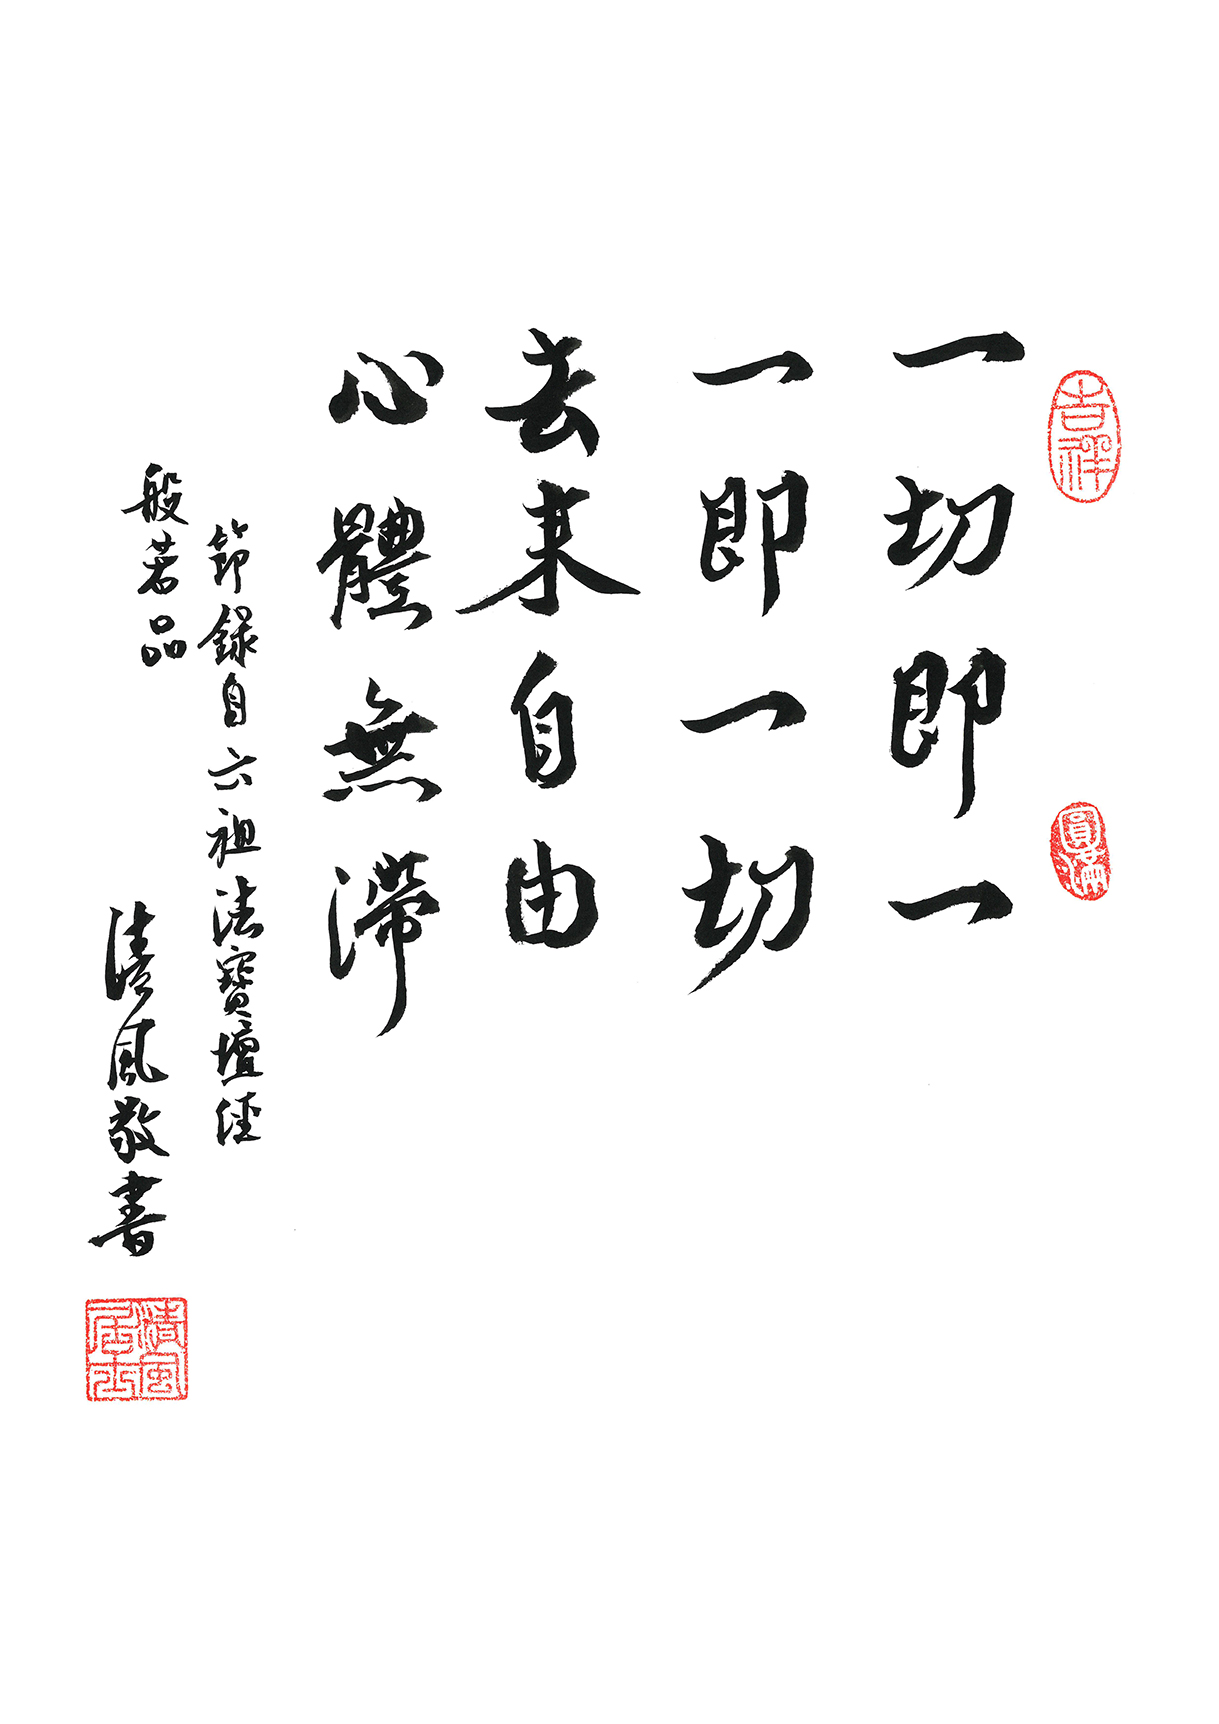 吉祥
圓滿
一切即一
一即一切
去来自由
心體無滯
節錄自六祖法寶壇經
般若品
清風敬書
清風居士